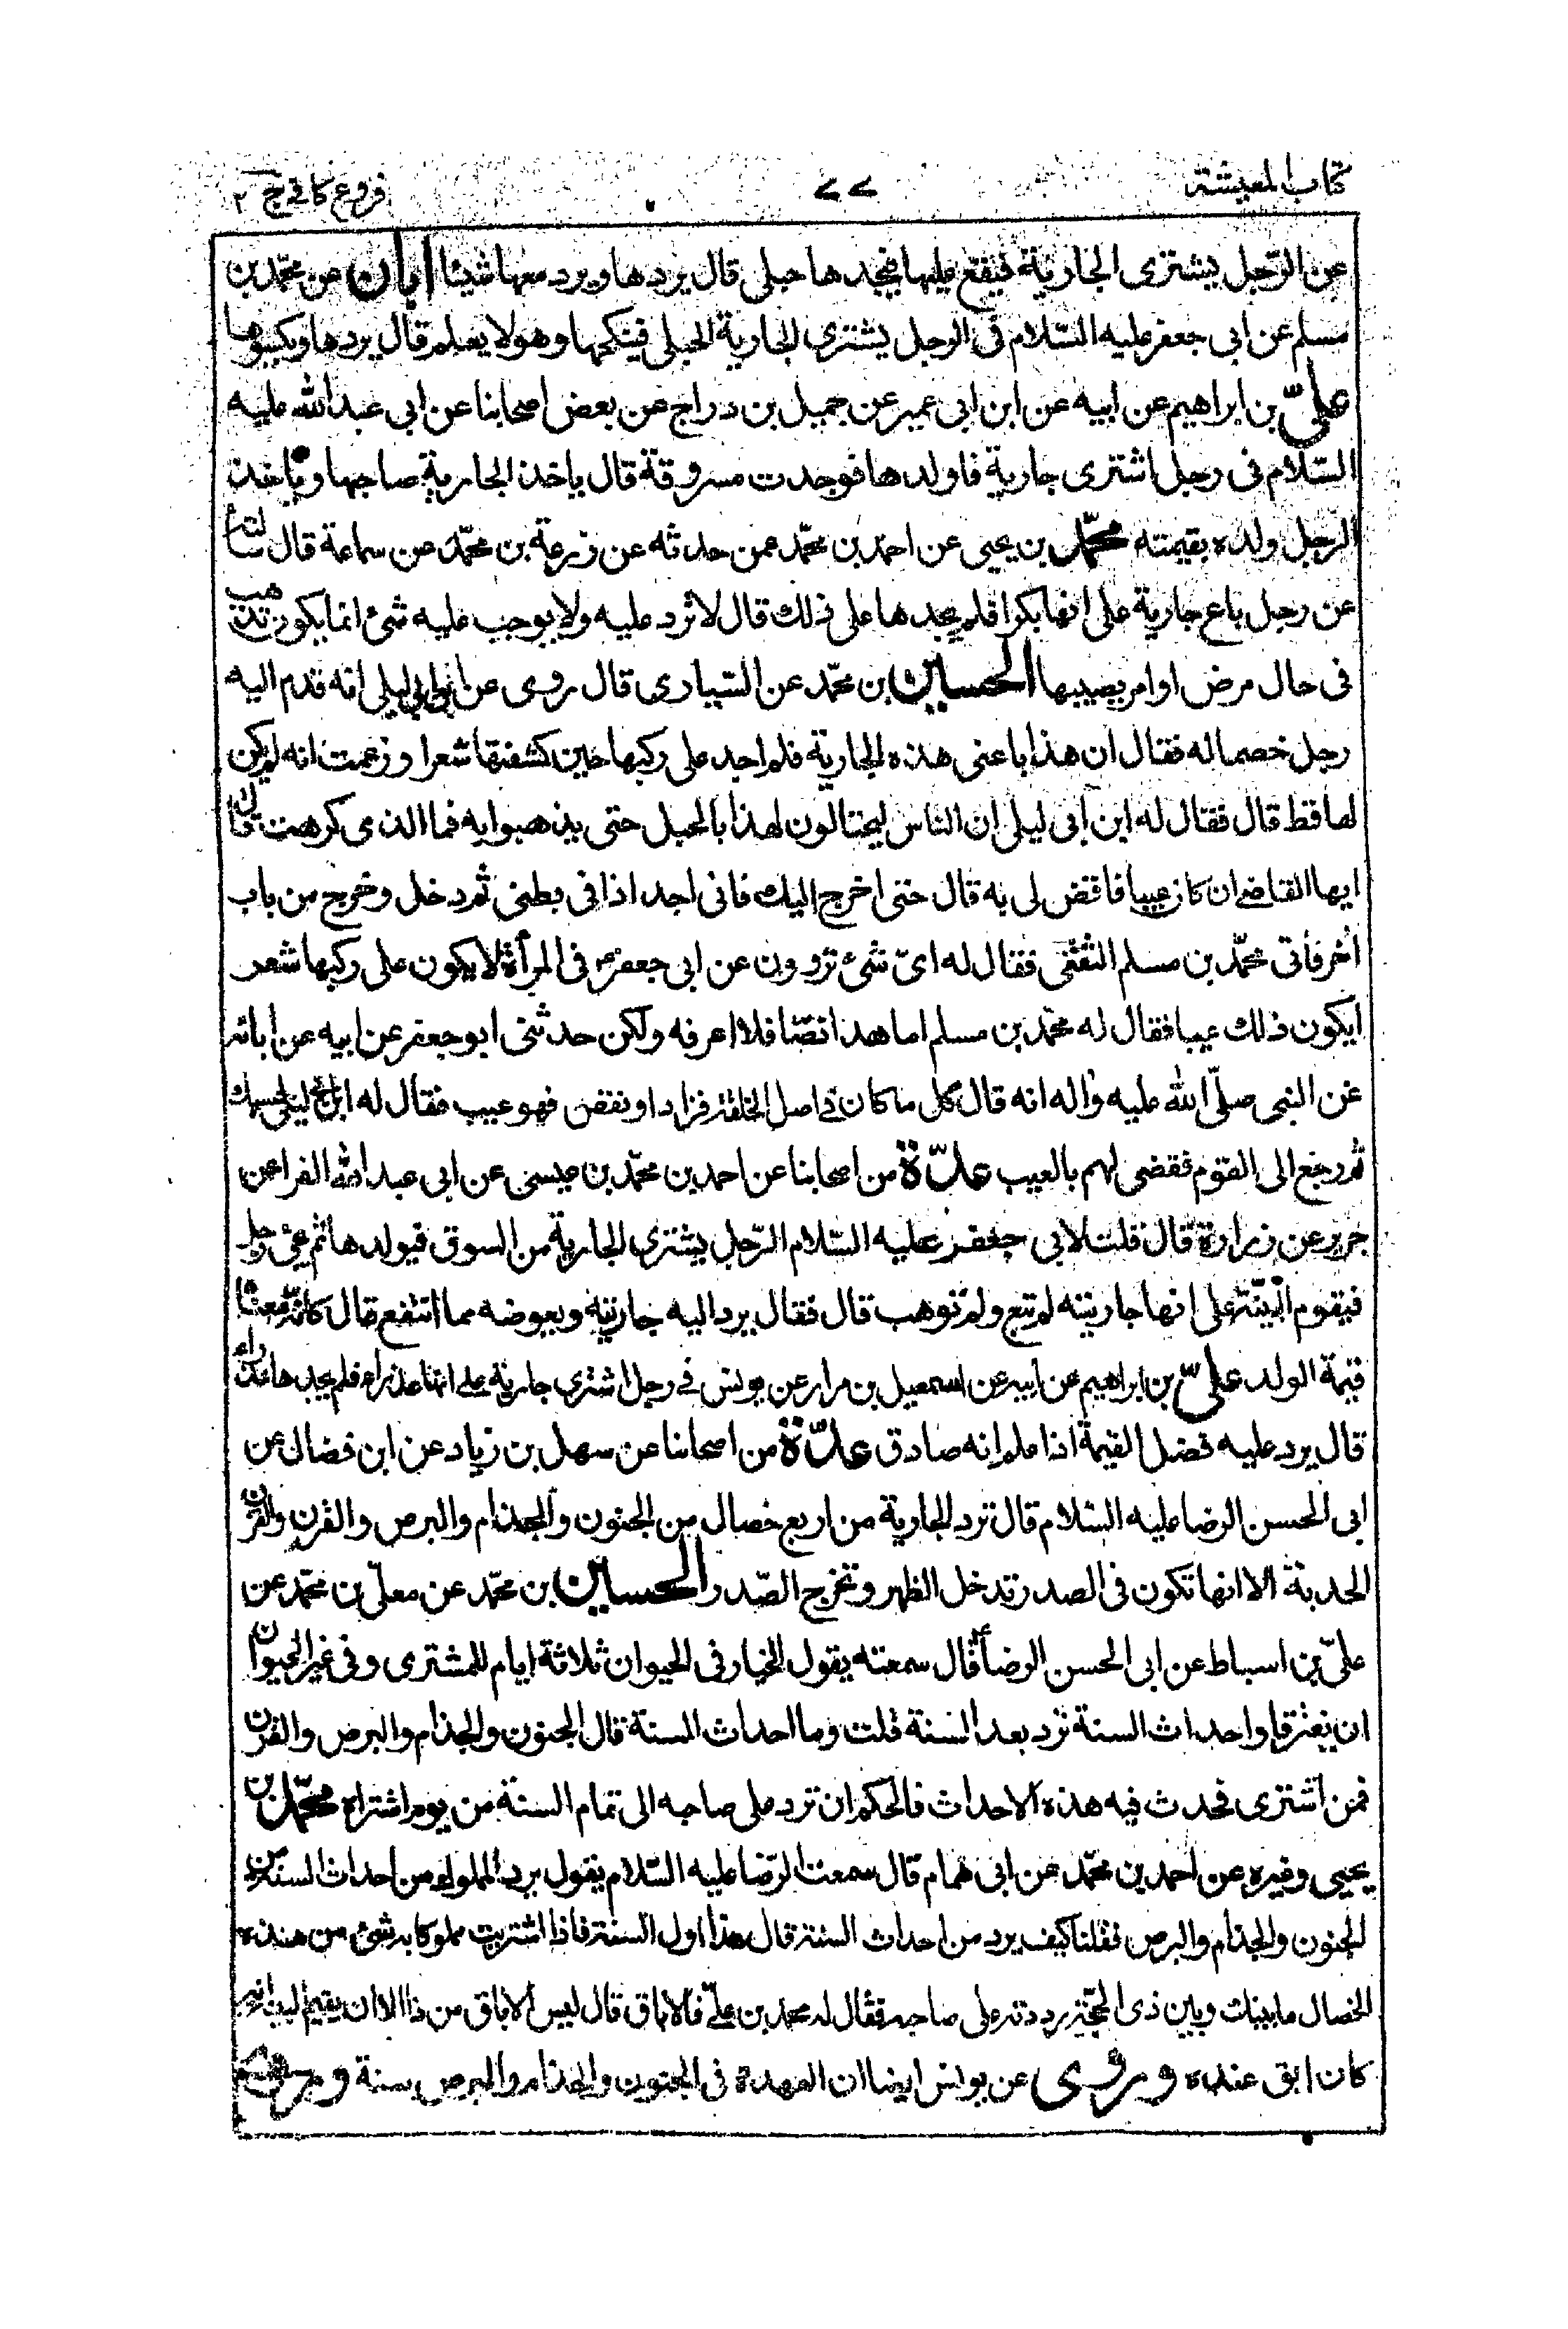 كتاب المعيشة ٧٧ فروع كافى ج ٢
عن الرّجل يشترى الجارية فيقع عليها فيجدها حبلى قال يردها ويرد معها شيئا ابان عن محمّد بن
مسلم عن ابى جعفر عليه السّلام فى الرجل يشترى الجارية الحبلى فينكحها وهو لا يعلم قال يردها ويكسوها
علىّ بن ابراهيم عن ابيه عن ابن ابى عمير عن جميل بن دراج عن بعض اصحابنا عن ابى عبد الله عليه
السّلام فى رجل اشترى جارية فاولدها فوجدت مسروقة قال ياخذ الجارية صاحبها وياخذ
الرجل ولده بقيمته محمّد بن يحيى عن احمد بن محمّد عمن حدثه عن زرعة بن محمّد عن سماعة قال سألته
عن رجل باع جارية على انها بكر فلم يجدها على ذلك قال لا ترد عليه ولا يوجب عليه شئ انما يكون تذهب
فى حال مرض او امر يصيبها الحسين بن محمّد عن السّيارى قال روى عن ابن ابى ليلى انه قدم اليه
رجل خصما له فقال ان هذا باعنى هذه الجارية فلم اجد على ركبها حين كشفتها شعرا وزعمت انه لم يكن
لها قط قال فقال له ابن ابى ليلى ان الناس ليحتالون لهذا بالحيل حتى يذهبوا به فما الذى كرهت قال
ايها القاضى ان كان عيبا فاقض لى به قال حتى اخرج اليك فانى اجد اذا فى بطنى ثم دخل وخرج من باب
اخر فأتى محمّد بن مسلم الثقفى فقال له اىّ شئ تروون عن ابى جعفر ع فى المرأة لا يكون على ركبها شعر
ايكون ذلك عيبا فقال له محمّد بن مسلم اما هذا نصّا فلا اعرفه ولكن حدثنى ابو جعفر عن ابيه عن ابائه
عن النبى صلّى الله عليه واله انه قال كل ما كان فى اصل الخلقة فزاد او نقص فهو عيب فقال له ابن ابى ليلى حسبك
ثم رجع الى القوم فقضى لهم بالعيب عدّة من اصحابنا عن احمد بن محمّد بن عيسى عن ابى عبد الله الفرا عن
حريز عن زرارة قال قلت لابى جعفر عليه السّلام الرّجل يشترى الجارية من السوق فيولدها ثم يجئ رجل
فيقيم البيّنة على انها جاريته لم تبع ولم توهب قال فقال يرد اليه جاريته ويعوضه مما انتفع قال كانّه معناه
قيمة الولد علىّ بن ابراهيم عن ابيه عن اسمعيل بن مرار عن يونس فى رجل اشترى جارية على انها عذراء فلم يجدها عذراء
قال يرد عليه فضل القيمة اذا علم انه صادق عدّة من اصحابنا عن سهل بن زياد عن ابن فضال عن
ابى الحسن الرضا عليه السّلام قال ترد الجارية من اربع خصال من الجنون والجذام والبرص والقرن والقرن
الحدبة الا انها تكون فى الصدر تدخل الظهر وتخرج الصّدر الحسين بن محمّد عن معلّى بن محمّد عن
علىّ بن اسباط عن ابى الحسن الرضا ع قال سمعته يقول الخيار فى الحيوان ثلاثة ايام للمشترى وفى غير الحيوان
ان يفترقا واحداث السنة ترد بعد السنة قلت وما احداث السنة قال الجنون والجذام والبرص والقرن
فمن اشترى فحدث فيه هذه الاحداث فالحكم ان ترد على صاحبه الى تمام السنة من يوم اشتراه محمّد بن
يحيى وغيره عن احمد بن محمّد عن ابى همام قال سمعت الرّضا عليه السّلام يقول يرد المملوك من احداث السنة من
الجنون والجذام والبرص فقلنا كيف يرد من احداث السنة قال هذا اول السنة فاذا اشتريت مملوكا به شئ من هذه
الخصال ما بينك وبين ذى الحجّة رددته على صاحبه فقال له محمد بن علىّ فالاباق قال ليس الاباق من ذا الا ان يقيم البينة انه
كان ابق عنده وروى عن يونس ايضا ان العهدة فى الجنون والجذام والبرص سنة وروى